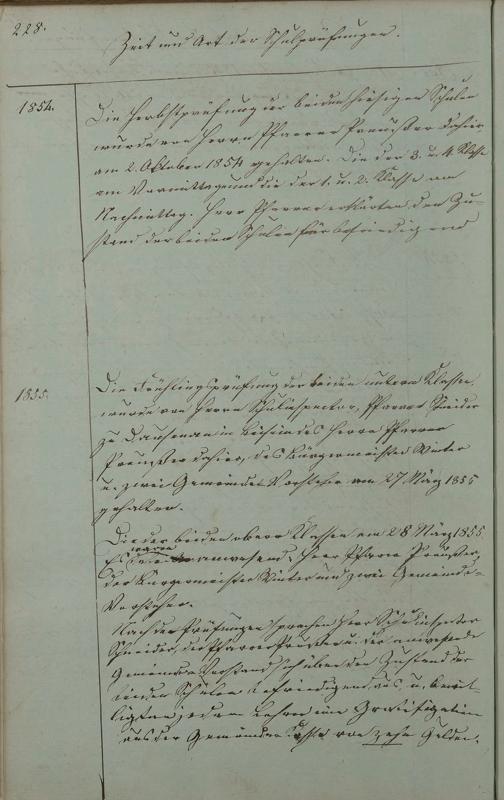 228.
Zeit und Art der Schulprüfungen.
1854.
Die Herbstprüfung der beiden hiesigen Schulen
wurde von Herrn Pfarrer Preußer dahier
am 2. Oktober 1854 gehalten. Die der 3. u. 4. Klasse
am Vormittag und die der 1. u. 2. Klasse am
Nachmittag. Herr Pfarrer erklärten den Zu-
stand der beiden Schulen für befriedigend
1855.
Die Frühlingsprüfung der beiden untern Klassen
wurde von Herrn Schulinspector, Pfarrer Schneider
zu Dausenau im Beisein des Herrn Pfarrer
Preußer dahier, des Bürgermeister Winter
u. zwei Gemeinde Vorsteher am 27 März 1855
gehalten.
Die der beiden obern Klassen am 28 März 1855.
Es waren anwesend: Herr Pfarrer Preußer,
der Bürgermeister Winter und zwei Gemeinde-
Vorsteher.
Nach der Prüfungen sprachen Herr Schulinspector
Schneider, der Pfarrer Preußer u. der anwesende
Gemeinde Vorstand sich über den Zustand der
beiden Schulen befriedigend aus, u. bewil-
ligten jedem Lehrer eine Gratification
aus der Gemeinde Kasse von zehn Gulden.